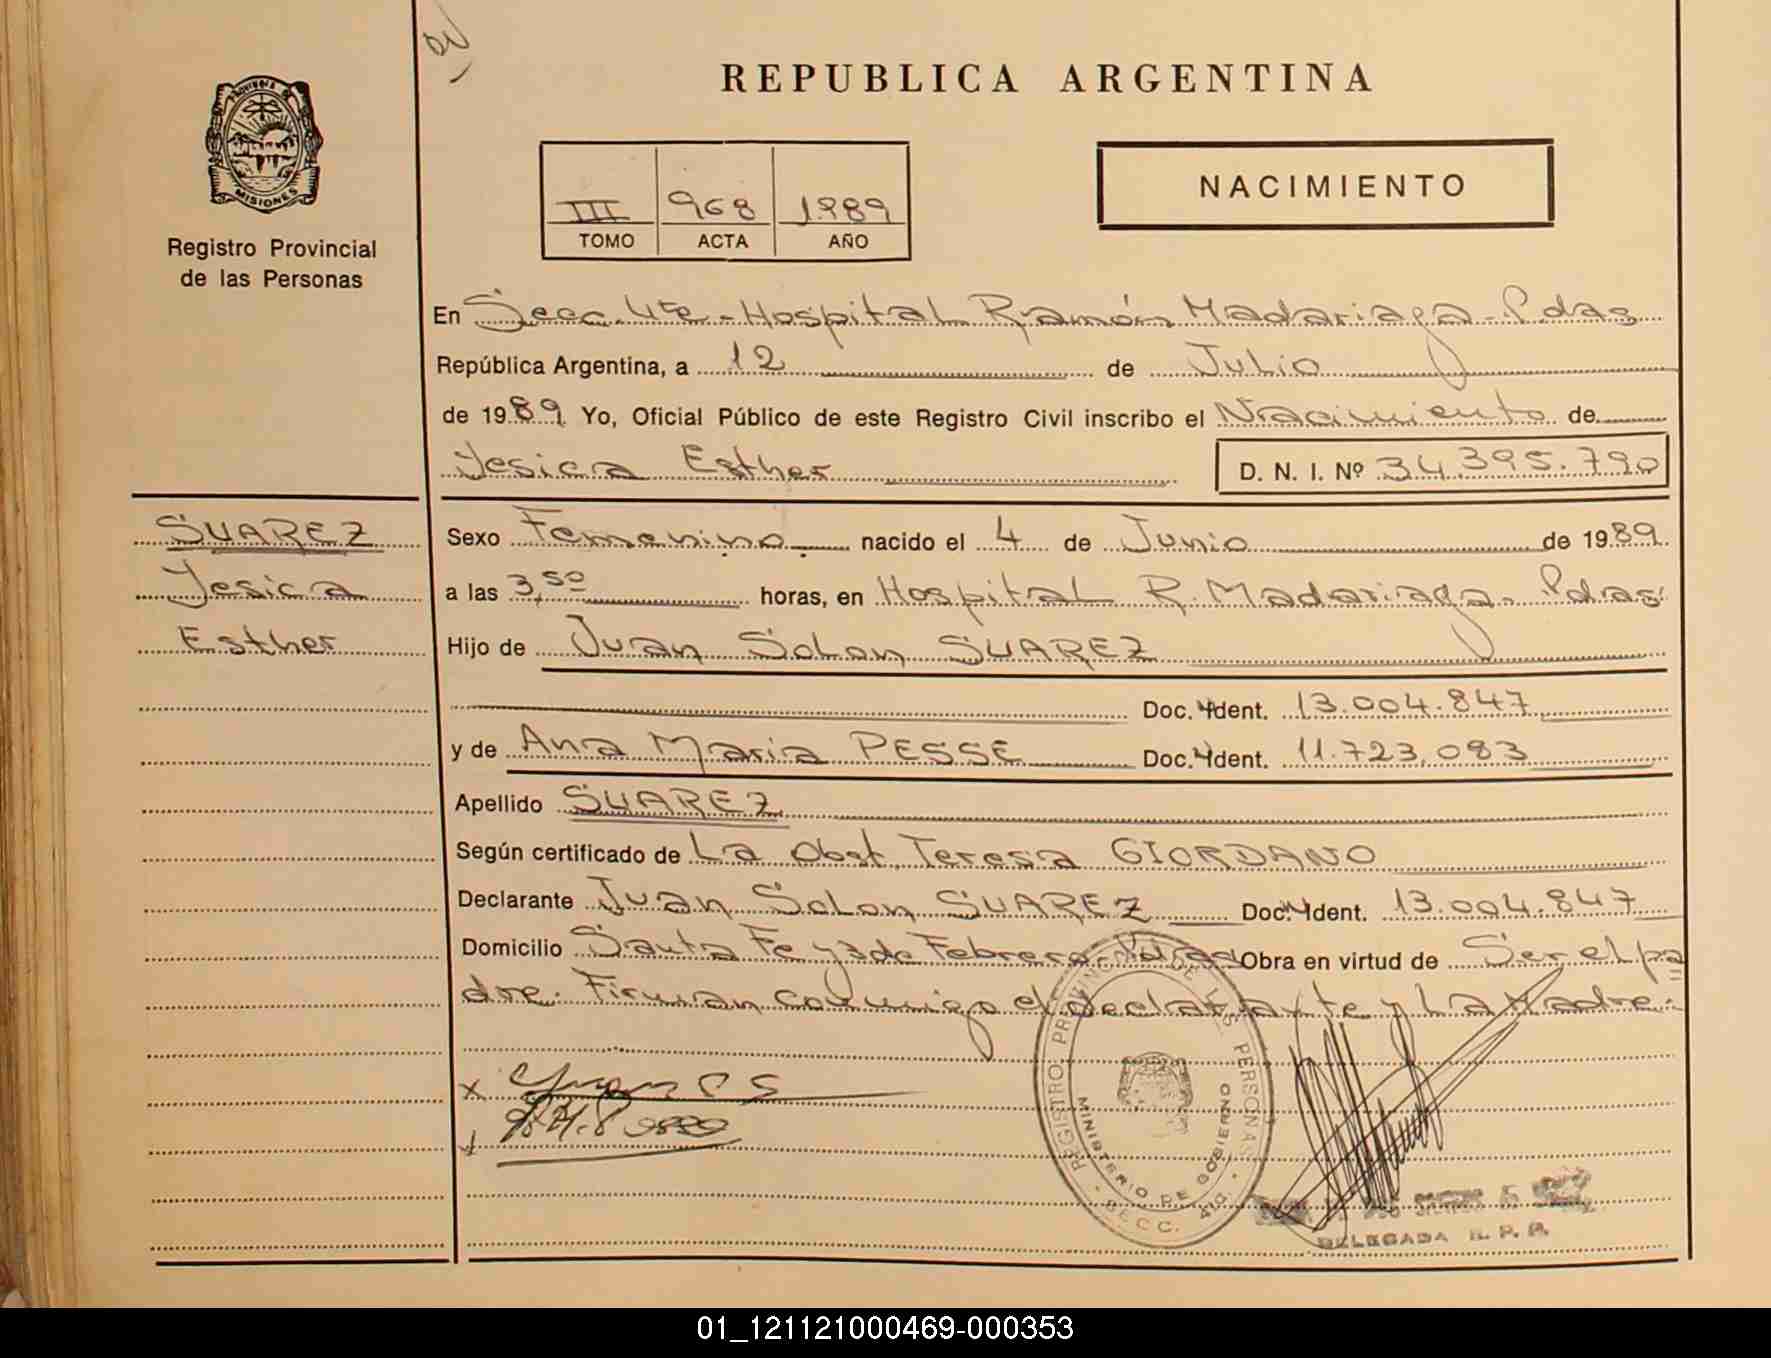 REPUBLICA ARGENTINA
PROVINCIA DE
MISIONES
Registro Provincial
de las Personas
NACIMIENTO
III 968 1989
TOMO ACTA AÑO
En Secc. 4ta - Hospital Ramón Madariaga - Pdas
República Argentina, a 12 de Julio
de 1989 Yo, Oficial Público de este Registro Civil inscribo el Nacimiento de
Yesica Esther D. N. I. Nº 34.395.790
SUAREZ
Yesica
Esther
Sexo Femenino nacido el 4 de Junio de 1989
a las 3,50 horas, en Hospital R. Madariaga - Pdas
Hijo de Juan Solon SUAREZ
Doc. Ident. 13.004.847
y de Ana Maria PESSE Doc. Ident. 11.723,083
Apellido SUAREZ
Según certificado de La Obst. Teresa GIORDANO
Declarante Juan Solon SUAREZ Doc. Ident. 13.004.847
Domicilio Santa Fe y 3 de Febrero - Pdas Obra en virtud de Ser el pa
dre. Firman conmigo el declarante y La Madre.-
REGISTRO PROVINCIAL DE LAS PERSONAS
MINISTERIO DE GOBIERNO
SECC.
DELEGADA R. P. P.
01_121121000469-000353